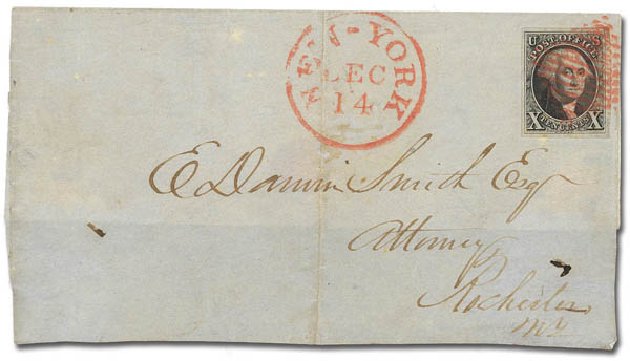 NEW-YORK
DEC
14
U S
POST OFFICE
X TEN CENTS X
E Darwin Smith Esq
Attorney
Rochester
N.Y.